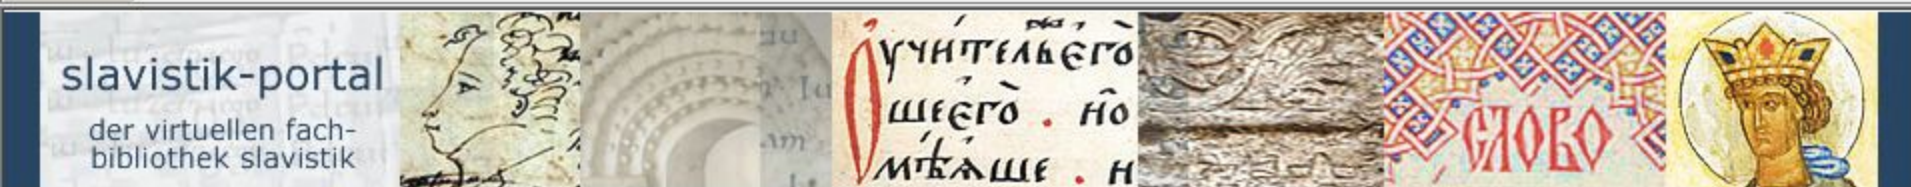 slavistik-portal
der virtuellen fach-
bibliothek slavistik
ѹчи́тельєго̀
шеєго̀ . но̑
мѣѧше . н
СЛОВО